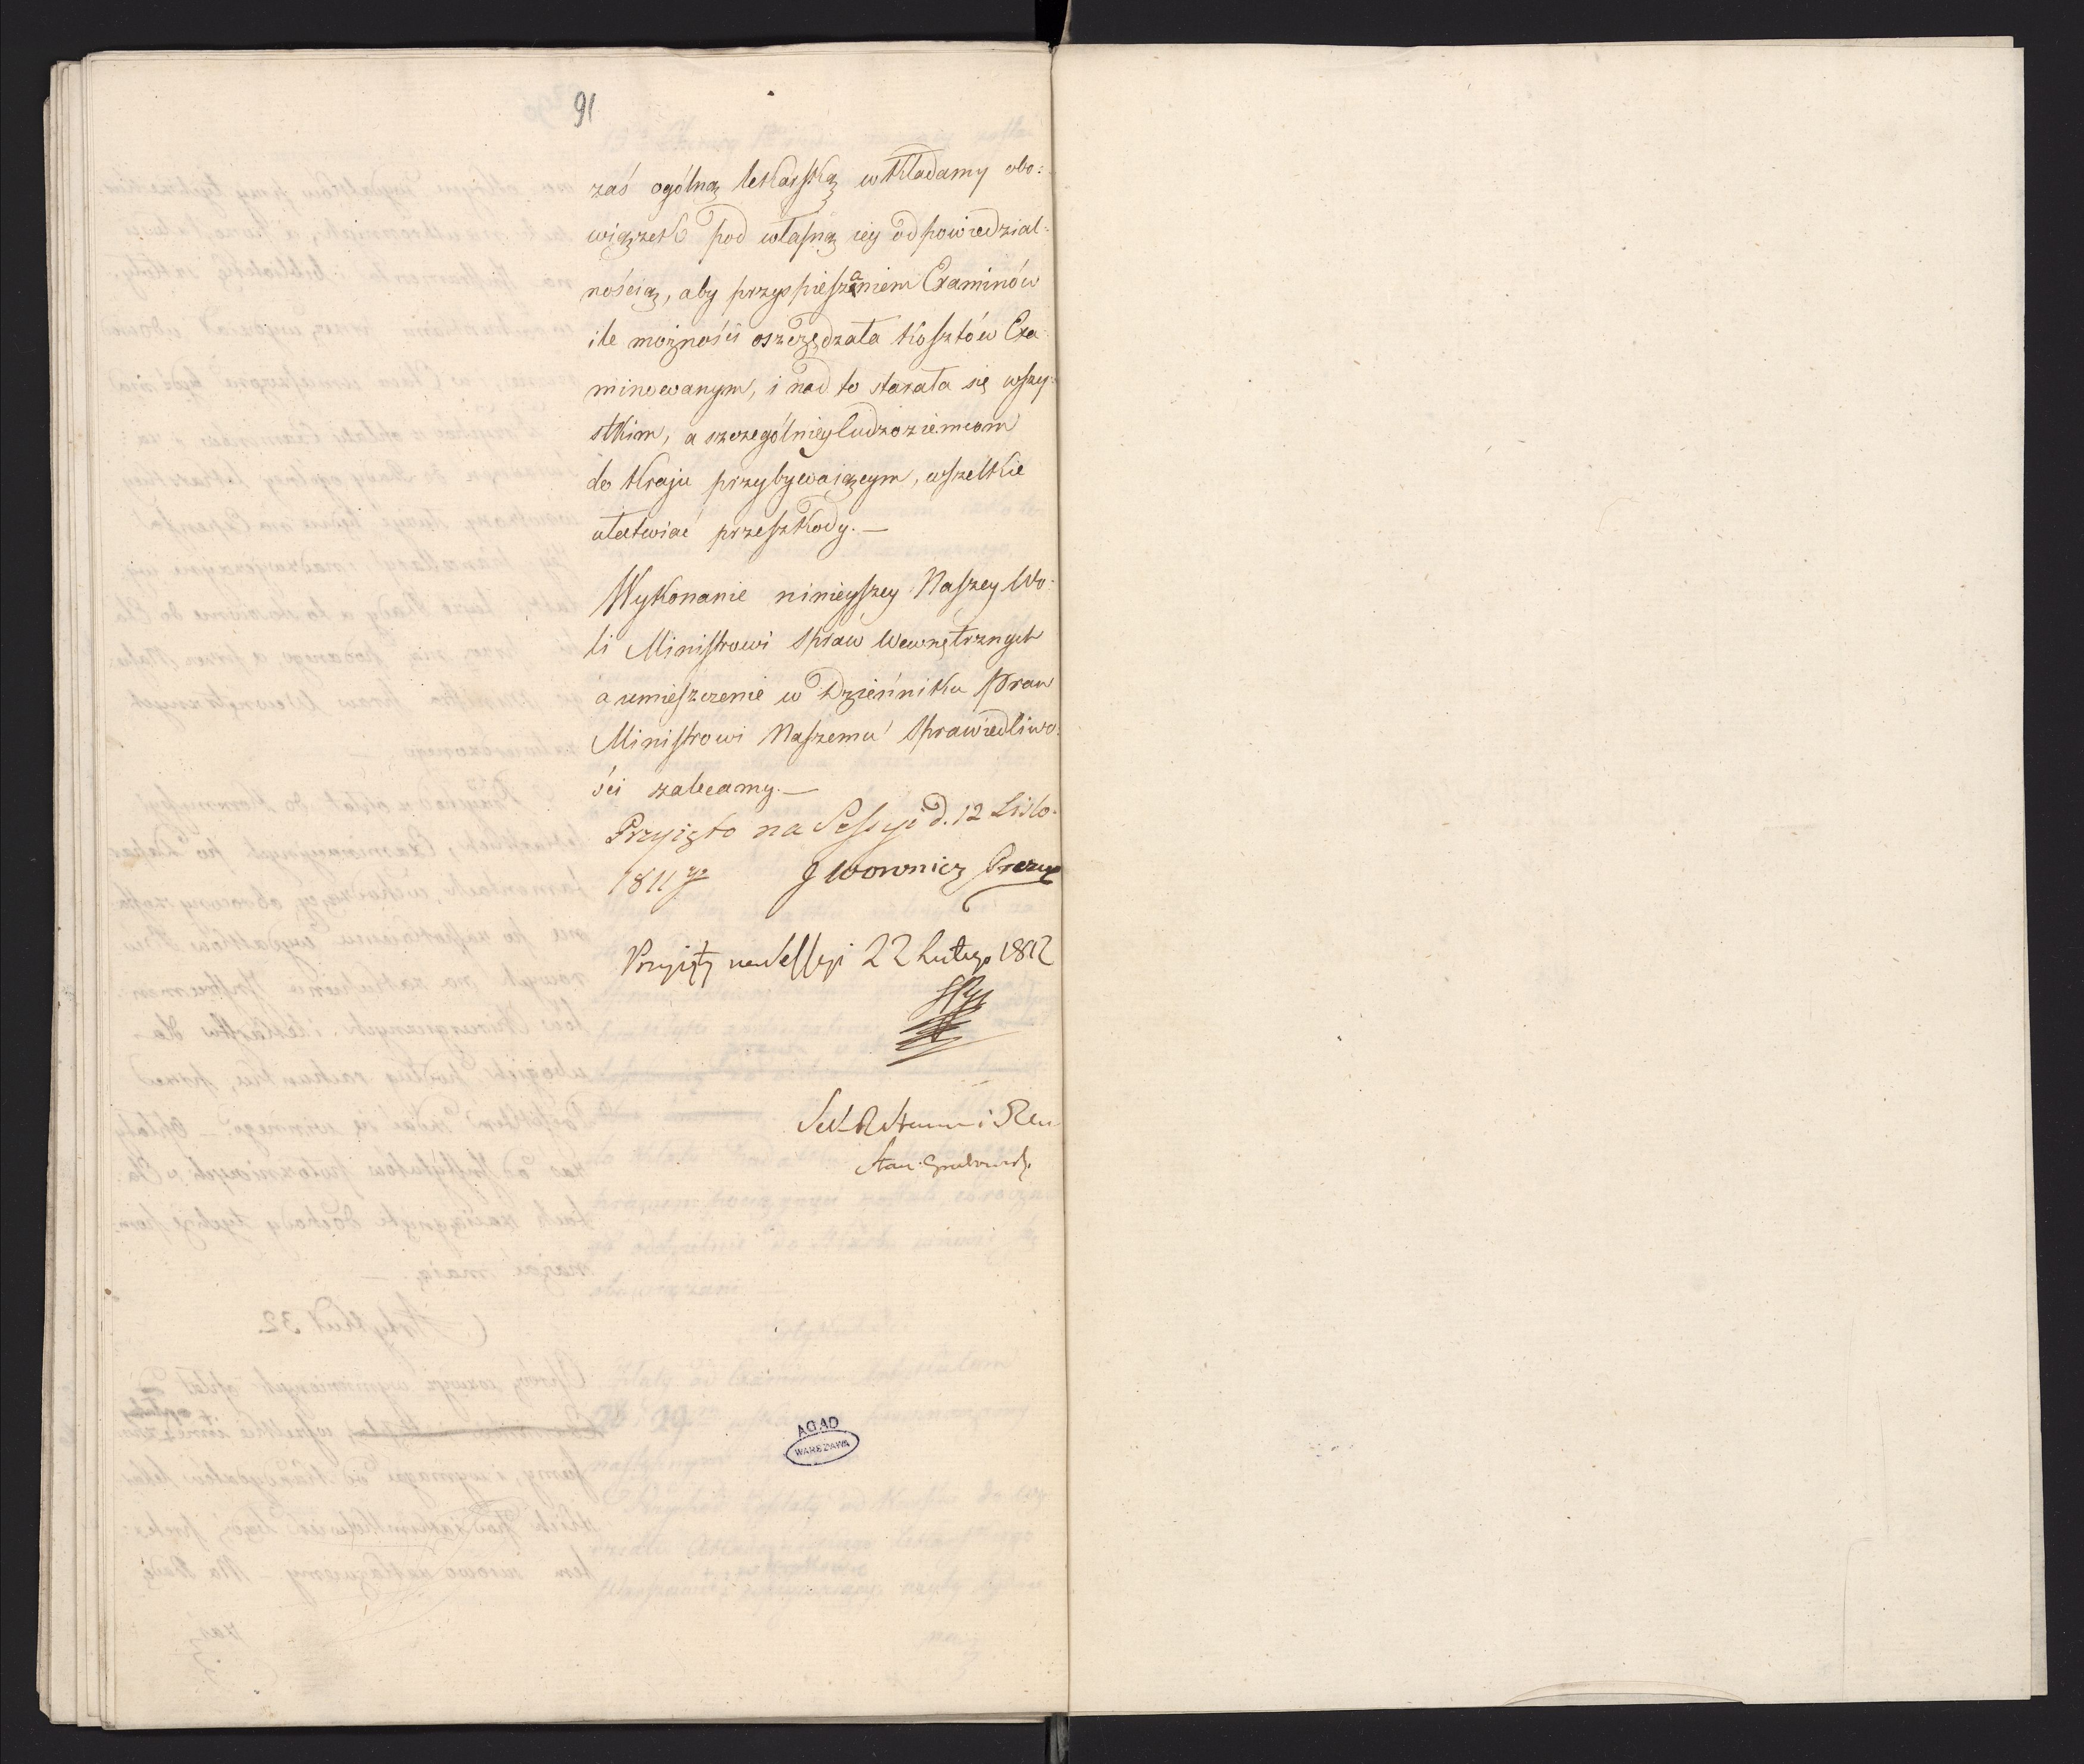 91
zaś ogólną lekarską wkładamy obo:
wiązek pod własną iey odpowiedzial:
nością, aby przyspieszaniem Examinów
ile możności oszczędzała kosztów Exa
minowanym, i nad to starała się wszy:
stkim, a szczególniey Cudzoziemcom
do Kraju przybywaiącym, wszelkie
ułatwiać przeszkody. —
Wykonanie ninieyszey Naszey Wo:
li Ministrowi Spraw Wewnętrznych
a umieszczenie w Dzienniku Praw
Ministrowi Naszemu Sprawiedliwo:
ści zalecamy. —
Przyięto na Sessyi d. 12 Listo.
1811 go
Przyięty na Sessyi 22 Lutego 1812
Stan. Grabowski
AGAD
WARSZAWA